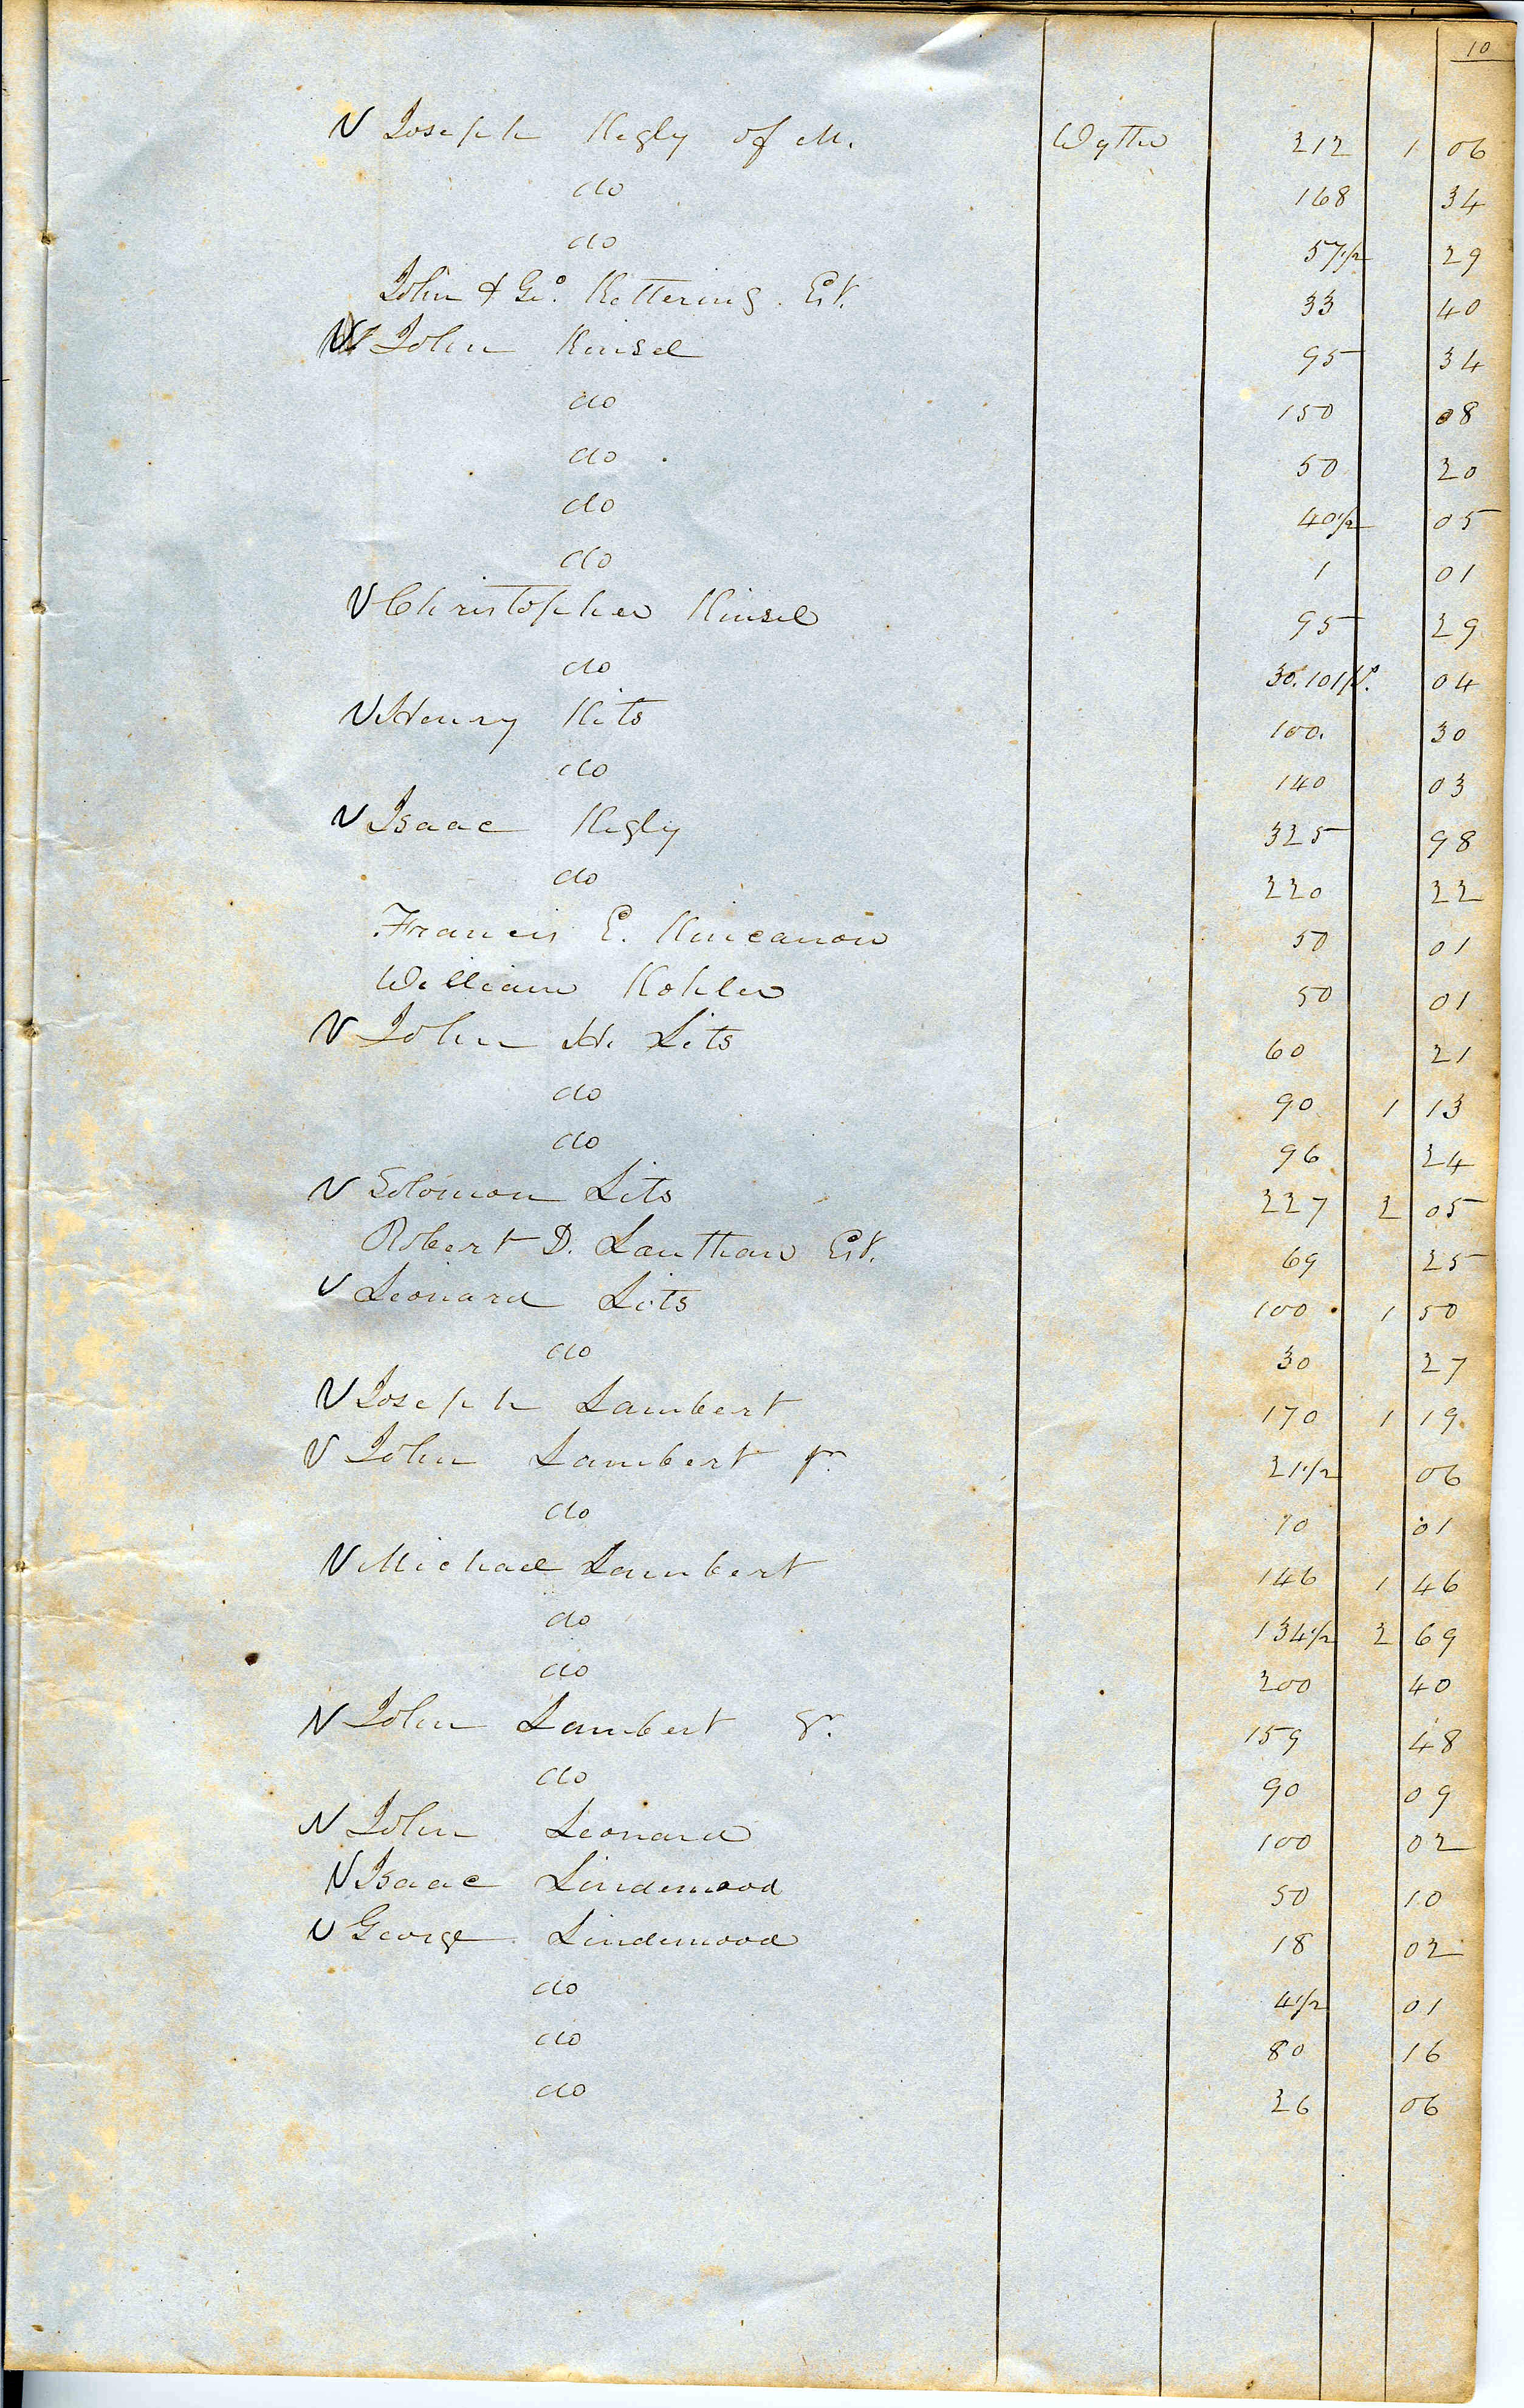 10
V Joseph Kegly of M. Wythe 212 1 06
do 168 34
do 57 1/2 29
John & Geo. Kettering Est. 33 40
V John Kinsel 95 34
do 150 08
do 50 20
do 40 1/2 05
do 1 01
V Christopher Kinsel 95 29
do 30. 101 p. 04
V Henry Kits 100. 30
do 140 03
V Isaac Kegly 325 98
do 220 22
Francis E. Kincanon 50 01
William Kohler 50 01
V John H. Lits 60 21
do 90 1 13
do 96 24
V Solomon Lits 227 2 05
Robert D. Lanthan Est. 69 25
V Leonard Lits 100 1 50
do 30 27
V Joseph Lambert 170 1 19
V John Lambert jr. 21 1/2 06
do 10 01
V Michael Lambert 146 1 46
do 134 1/2 2 69
do 200 40
V John Lambert Sr. 159 48
do 90 09
V John Leonard 100 02
V Isaac Lindemood 50 10
V George Lindemood 18 02
do 4 1/2 01
do 80 16
do 26 06